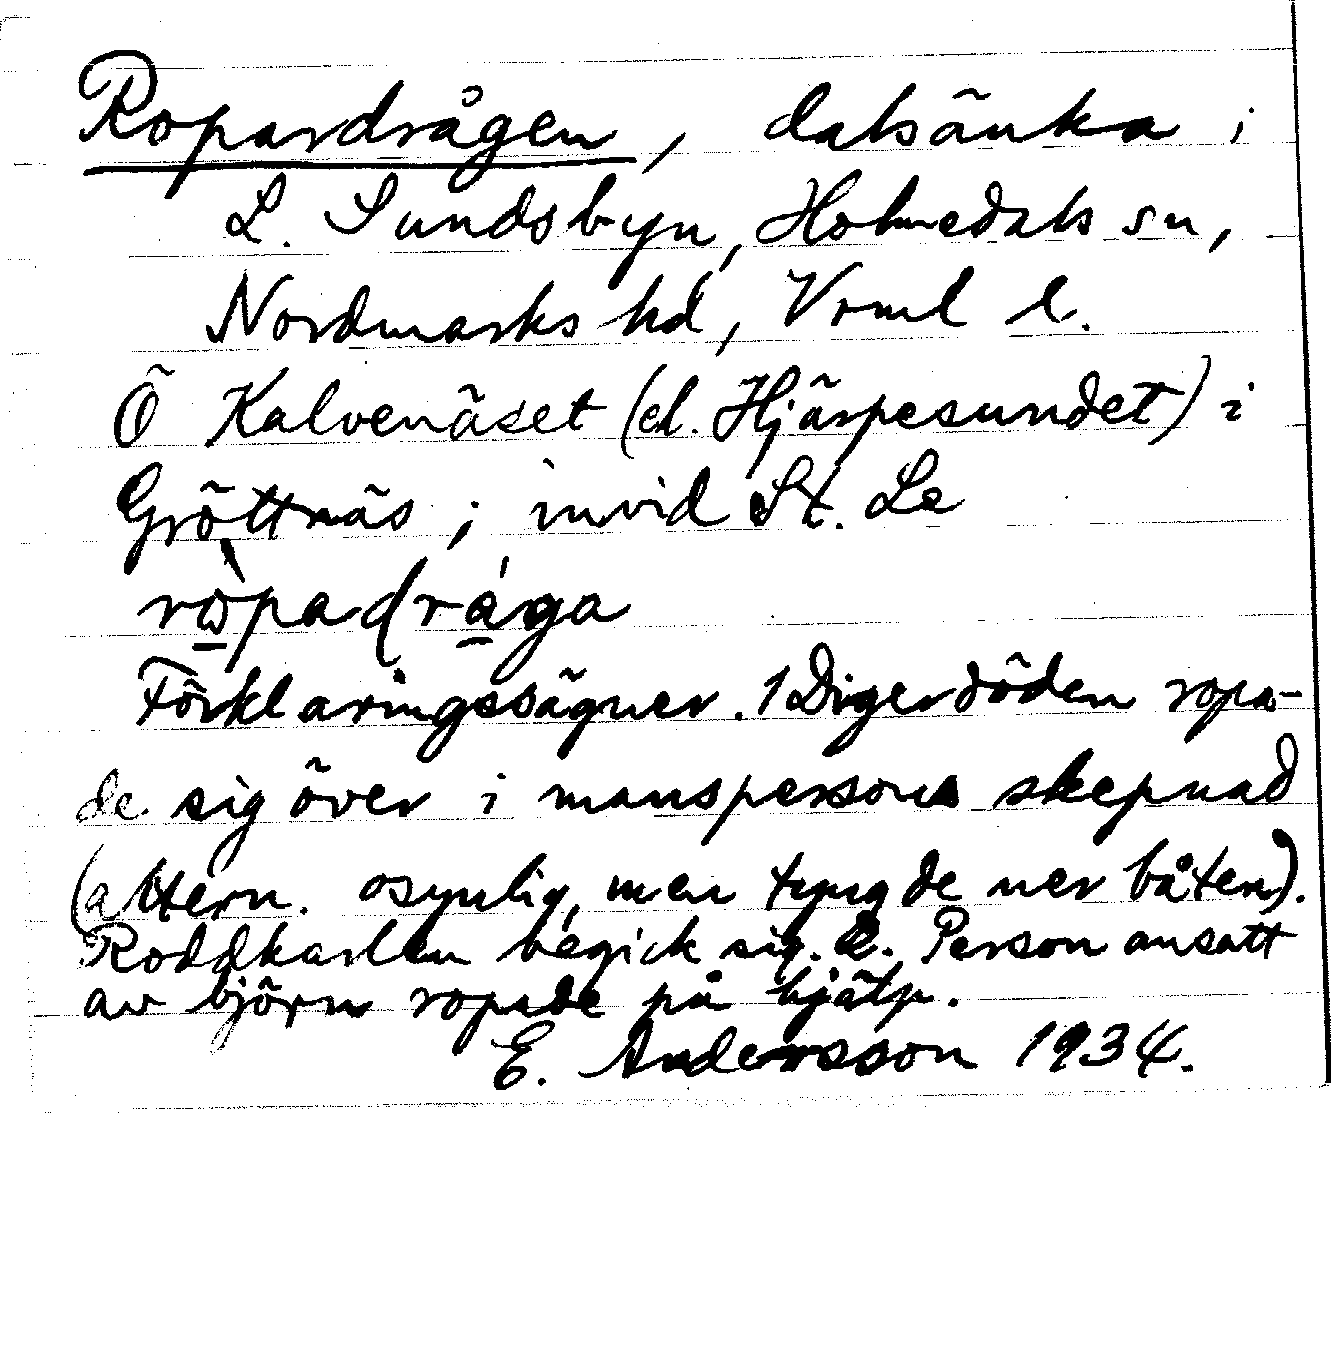 Ropardrågen, dalsänka i
L. Sundsbyn, Holmedals sn,
Nordmarks hd, Vrml l.
Ö Kalvenäset (el. Hjärpesundet) i
Gröttnäs; invid St. Le
ròpadråga
Förklaringssägner. 1 Digerdöden ropa-
de sig över i manspersons skepnad
(altern. osynlig, men tyngde ner båten).
Roddkarlen begick sig. 2. Person ansatt
av björn ropade på hjälp.
E. Andersson 1934.